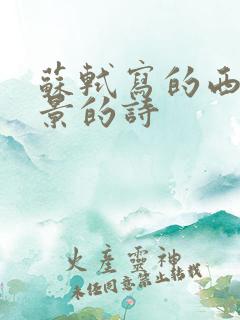 蘇軾寫的西
景的詩
火產靈神
未任同意禁止轉載